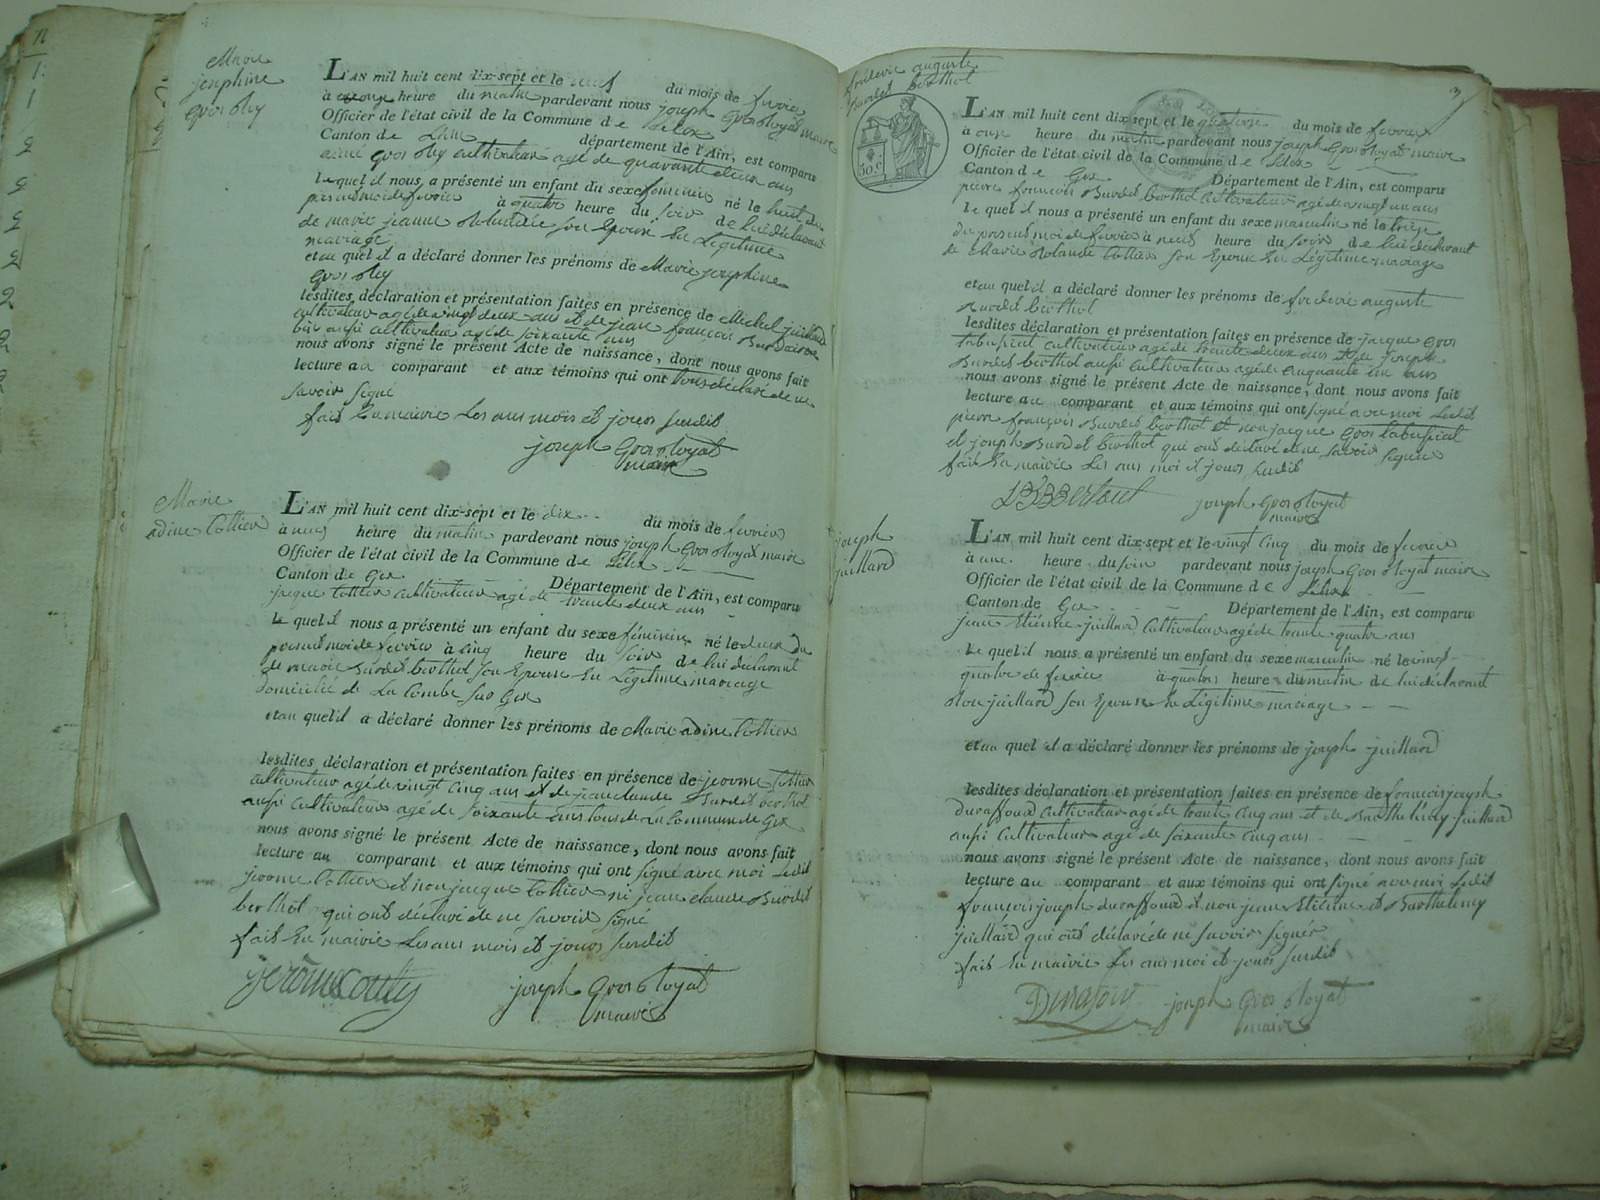 Marie
josephine
gros
L'AN mil huit cent dix-sept et le neuf du mois de fevrier
à onze heure du matin pardevant nous joseph gros maire
Officier de l'état civil de la Commune de Lelex
Canton de département de l'Ain, est comparu
aimé gros cultivateur agé de quarante deux ans
lequel il nous a présenté un enfant du sexe feminin né le huit du
présent mois de fevrier à quatre heure du soir de lui déclarant
de marie jeanne son Epouse En Légitime
mariage
et au quel il a déclaré donner les prénoms de Marie josephine
gros
lesdites déclaration et présentation faites en présence de Michel juilland
cultivateur agé de vingt deux ans et de jean françois
aussi cultivateur agé de soixante ans
nous avons signé le présent Acte de naissance, dont nous avons fait
lecture au comparant et aux témoins qui ont tous déclaré de ne
savoir signé
fait En mairie Les ans mois et jours susdit
joseph gros
maire
Marie
adine Cottier
L'AN mil huit cent dix-sept et le dix du mois de fevrier
à neuf heure du matin pardevant nous joseph gros maire
Officier de l'état civil de la Commune de Lelex
Canton de Gex Département de l'Ain, est comparu
jacque Cottier Cultivateur agé de trente deux ans
Le quel il nous a présenté un enfant du sexe féminin né le deux du
présent mois de fevrier à cinq heure du soir de lui déclarant
de marie burdet berthod son Epouse En Légitime mariage
domicilié de La Combe sur Gex
et au quel il a déclaré donner les prénoms de Marie adine Cottier
lesdites déclaration et présentation faites en présence de jerome Cottier
cultivateur agé de vingt cinq ans et de jean claude burdet berthod
aussi cultivateur agé de soixante ans tous de la Commune de Gex
nous avons signé le présent Acte de naissance, dont nous avons fait
lecture au comparant et aux témoins qui ont signé avec moi Ledit
jerome Cottier et non jacque Cottier ni jean claude Burdet
berthot qui ont déclaré de ne savoir signé
fait En mairie Les ans mois et jours susdit
jerôme
joseph gros
maire
frederic auguste
burdet berthot
50.C
3
L'AN mil huit cent dix-sept et le quatorze du mois de fevrier
à onze heure du matin pardevant nous joseph gros maire
Officier de l'état civil de la Commune de Lelex
Canton de Gex Département de l'Ain, est comparu
pierre françois Burdet berthot Cultivateur agé de vingt un ans
Le quel il nous a présenté un enfant du sexe masculin né le treize
du présent mois de fevrier à neuf heure du soir de lui déclarant
de Marie rolande Cottier son Epouse En Légitime mariage
et au quel il a déclaré donner les prénoms de frederic auguste
burdet berthot
lesdites déclaration et présentation faites en présence de jacque gros
cultivateur agé de trente deux ans et de joseph
burdet berthot aussi Cultivateur agé de cinquante un ans
nous avons signé le présent Acte de naissance, dont nous avons fait
lecture au comparant et aux témoins qui ont signé avec moi Ledit
pierre françois burdet berthot et non jacque gros
et joseph Burdet berthot qui ont déclaré de ne savoir signer
fait En mairie Les ans moi et jours susdit
joseph gros
maire
joseph
juilland
L'AN mil huit cent dix-sept et le vingt cinq du mois de fevrier
à une heure du soir pardevant nous joseph gros maire
Officier de l'état civil de la Commune de Lelex
Canton de Gex Département de l'Ain, est comparu
jean Etienne juilland Cultivateur agé de trente quatre ans
Le quel il nous a présenté un enfant du sexe masculin né le vingt
quatre de fevrier à quatre heure du matin de lui déclarant
juilland son Epouse En Légitime mariage
et au quel il a déclaré donner les prénoms de joseph juilland
lesdites déclaration et présentation faites en présence de françois joseph
duraffourd Cultivateur agé de trente cinq ans et de Barthelemy juilland
aussi Cultivateur agé de soixante cinq ans
nous avons signé le présent Acte de naissance, dont nous avons fait
lecture au comparant et aux témoins qui ont signé avec moi Ledit
françois joseph duraffourd et non jean Etienne et Barthelemy
juilland qui ont déclaré de ne savoir signer
fait En mairie Les ans moi et jours susdit
joseph gros
maire